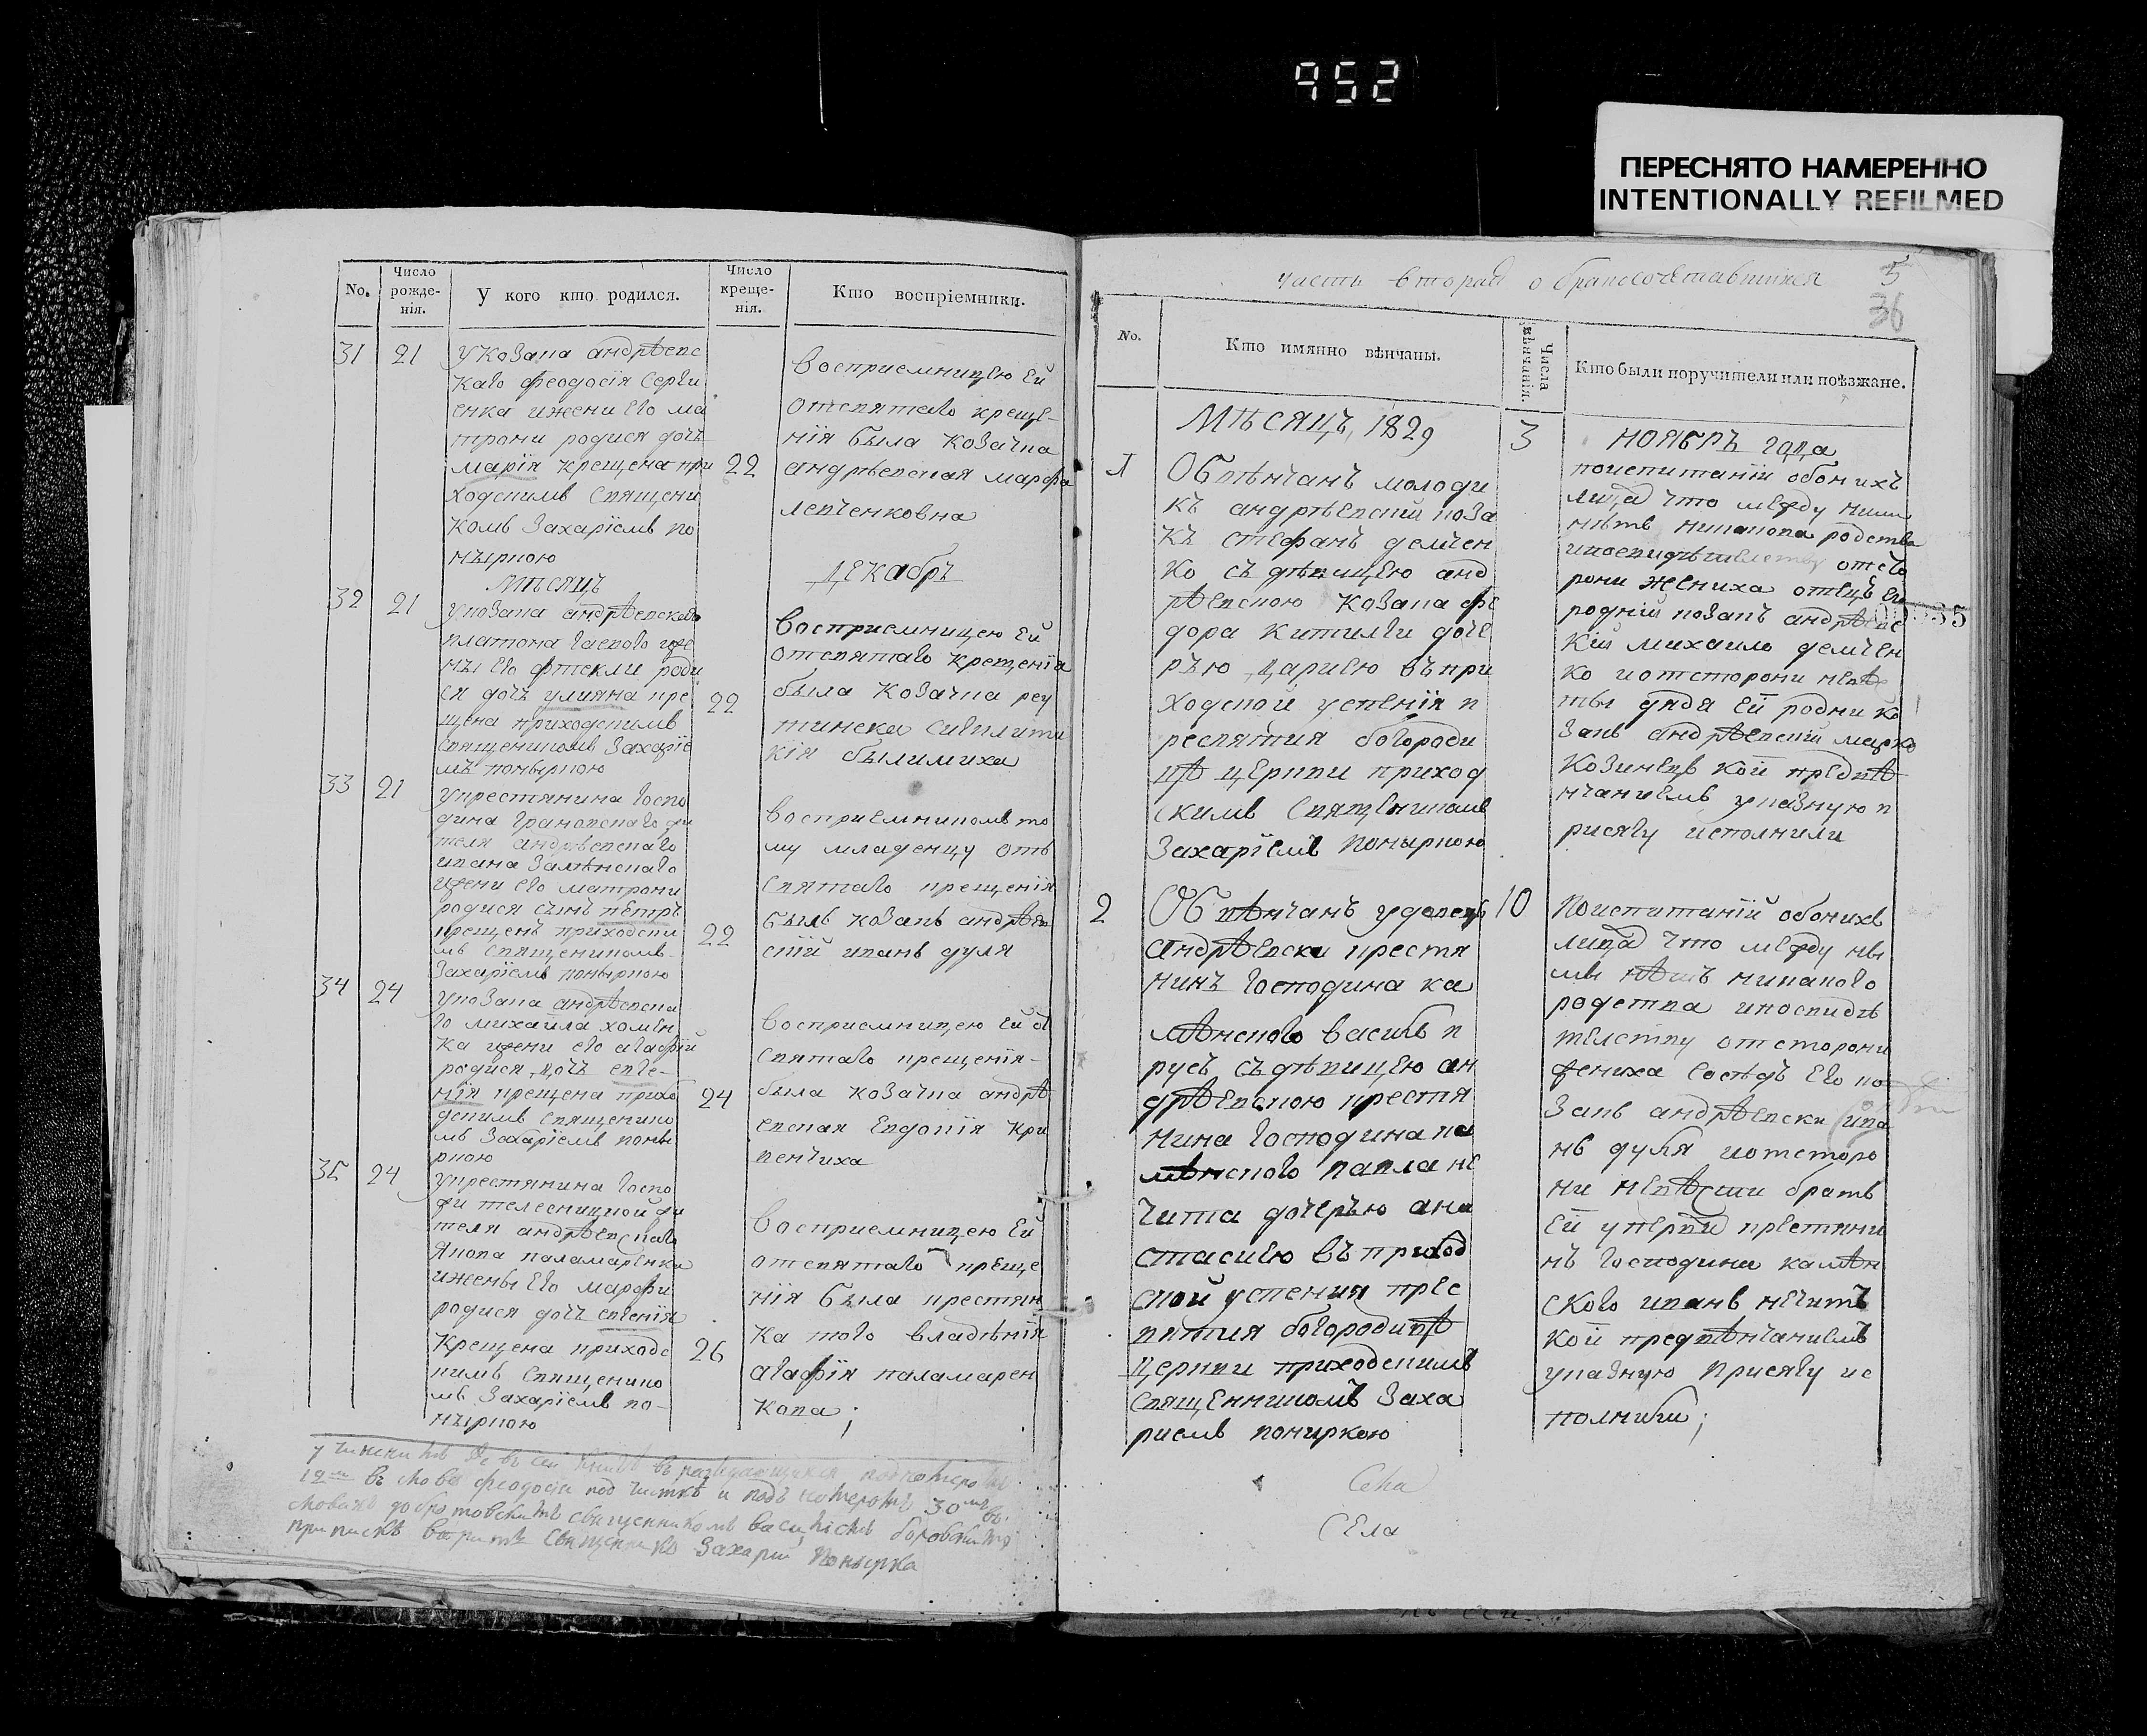 952
ПЕРЕСНЯТО НАМЕРЕННО
INTENTIONALLY REFILMED
No.
Число рожде-нія.
У кого кто родился.
Число креще-нія.
Кто воспріемники.
31
21
У козака андрѣевс
каго феодосія Серги
енка ижени его ма
трони родися дочь
марія крещена при
22
ходскимъ Священи
комъ Захаріемъ по
ныркою
воспріемницею ей
отсвятаго креще-
нія была козачка
андрѣевская марфа
левченковна
Мѣсяцъ
декабрь
32
21
укозака андрѣевскаго
платона гаевого же
ны его фтекли роди
ся дочь улияна кре
22
щена приходскимъ
Священикомъ Захаріе
мъ поныркою
воспріемницею ей
отсвятаго крещенія
была козачка реу
тинска
кія былимиха
33
21
укрестянина госпо
дина грановскаго жи
теля андрѣевскаго
ивана Замѣнскаго
ижени его матрони
родися сынъ петръ
крещенъ приходски
22
мъ священикомъ
Захаріемъ поныркою
воспріемникомъ то
му младенцу отъ
святаго крещенія
былъ козакъ андрѣев
скій иванъ дуля
34
24
укозака андрѣевска
го михаила хомен
ка ижени его агафій
родися дочь евге-
нія крещена прихо
24
дскимъ Священико
мъ Захаріемъ поны
ркою
воспріемницею ей от
святаго крещенія
была козачка андрѣ
евская Евдокія кри
венчиха
35
24
укрестянина госпо
жи телесницкой жи
теля андрѣевскаго
якова паламаренка
ижены его марфи
родися дочь евгенія
крещена приходс
26
кимъ Священико
мъ Захаріемъ по-
ныркою
воспріемницею ей
отсвятаго креще
нія была крестян
ка того владѣнія
агафія паламарен
кова ;
священникъ Захарій Понырка
часть вторая о бракосочетавшихся
5
36
No.
Кто имянно вѣнчаны.
Числа вѣнчанія.
Кто были поручители или поѣзжане.
Мѣсяцъ, 1829
3
ноябрь года
1
Обвѣнчанъ молоди
къ андрѣевскій коза
къ стефанъ демчен
ко съ дѣвицею анд
рѣевскою козака фе
дора китички доче
рью дариею въ при
ходской успенія п
ресвятия богороди
цѣ церкви приход
скимъ Священикомъ
Захаріемъ поныркою
поиспитаній обоихъ
лицъ что между ними
нѣтъ никакова родства
ипосвидѣтелству отсто
рони жениха отецъ ево
родній козакъ андрѣевс
35
кій михаило демчен
ко иотсторони невѣ
сты дядя ей родни ко
закъ андрѣевскій марко
козинецъ кой предвѣ
нчаниемъ указную п
рисягу исполнили
2
Обвѣнчанъ удовецъ
10
андрѣевски крестя
нинъ господина ка
мѣнского василь п
русъ съ дѣвицею ан
дрѣевскою крестя
нина господина ка
мѣнского павла не
чита дочерью ана
стасиею въ приход
ской успения прес
вятия богородицѣ
церкви приходскимъ
священникомъ Заха
риемъ пониркою
Поиспитаній обоихъ
лицъ что между ни
ми нѣтъ никакого
родства ипосвидѣ
телству отсторони
жениха сосѣдъ его ко
закъ андрѣевски ива
нъ дуля иотсторо
ни невѣсти братъ
ей крестяни
нъ господина камѣн
ского иванъ нечитъ
кой предвѣнчаниемъ
указную присягу ис
полнили ;
Села
Села